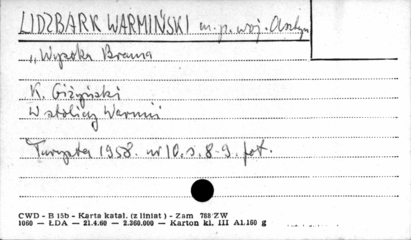 LIDZBARK WARMIŃSKI m. p. woj. Olsztyn
„Wysoka Brama
K. Giżyński
W stolicy Warmii
Turysta 1958. nr 10. s. 8-9. fot.
CWD - B 15b - Karta katal. (z liniat) - Zam 768 ZW
1060 — ŁDA — 21.4.60 — 2.360.000 — Karton kl. III A1.160 g